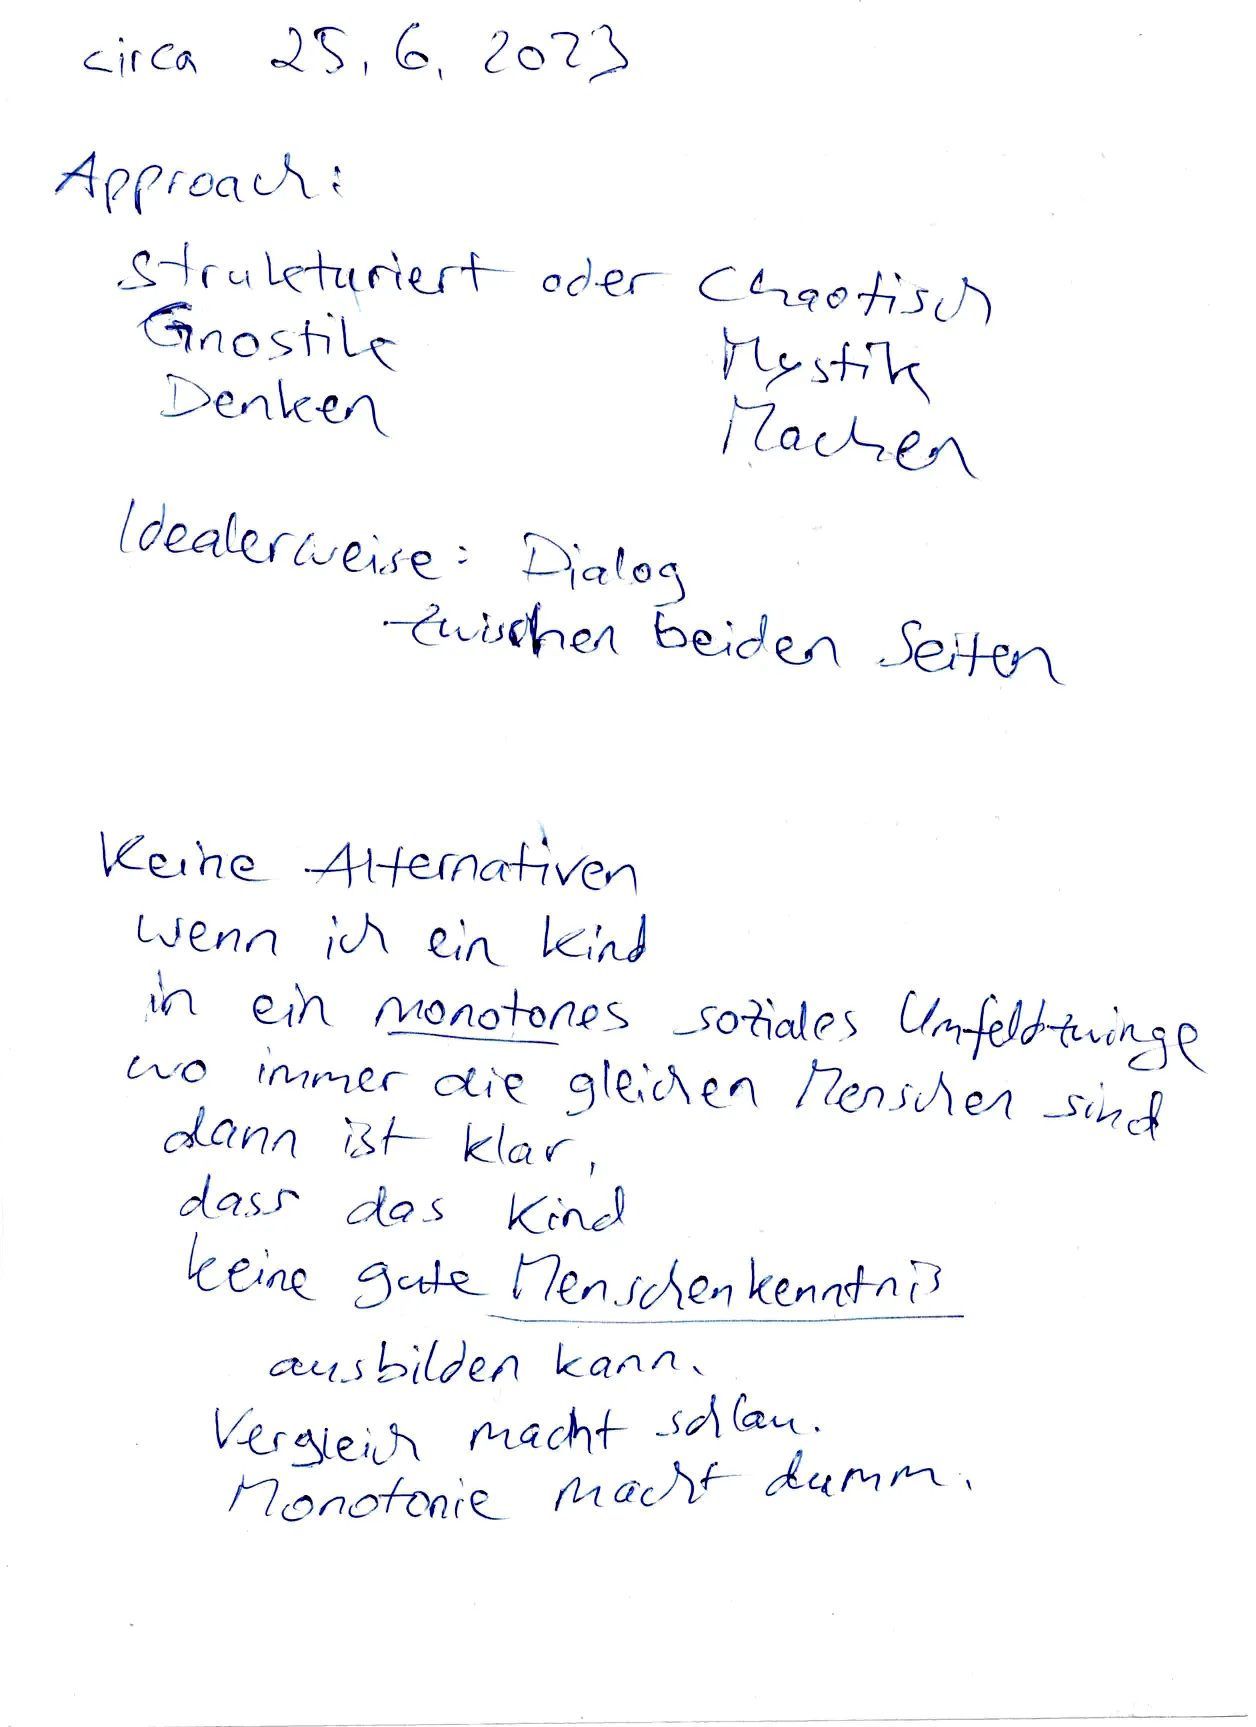 circa 25.6.2023
Approach:
Strukturiert oder Chaotisch
Gnostik Mystik
Denken Machen
Idealerweise: Dialog
zwischen beiden Seiten
Keine Alternativen
wenn ich ein Kind
in ein monotones soziales Umfeld zwinge
wo immer die gleichen Menschen sind
dann ist klar,
dass das Kind
keine gute Menschenkenntniß
ausbilden kann.
Vergleich macht schlau.
Monotonie macht dumm.